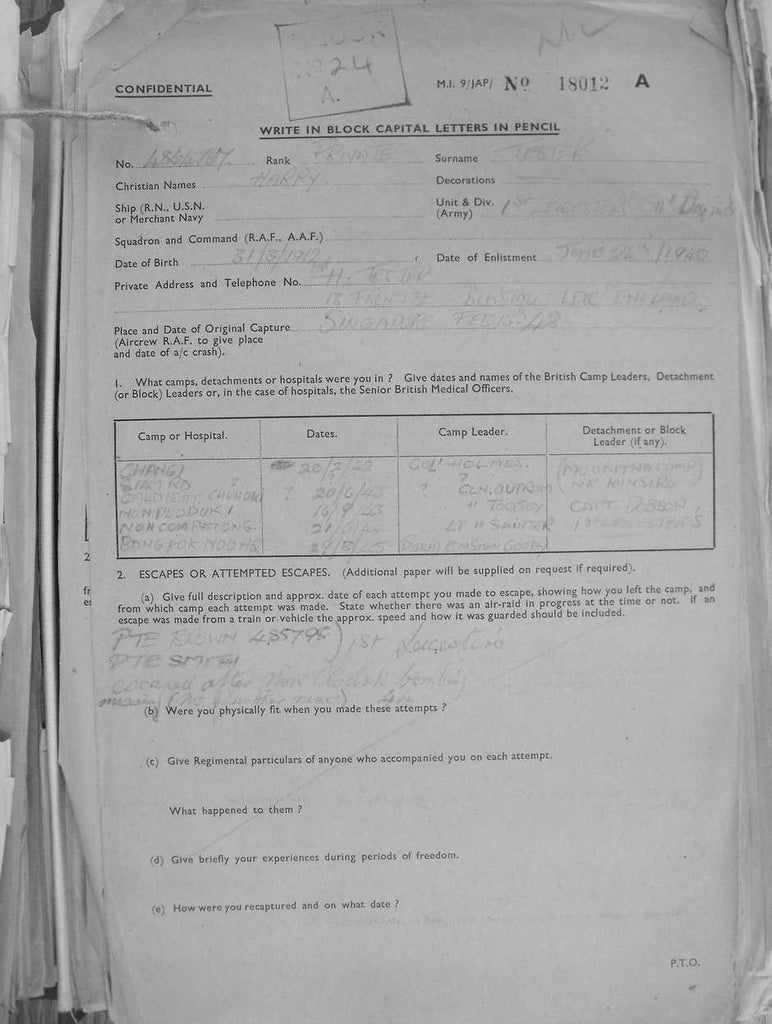 24
A.
CONFIDENTIAL
M.I. 9/JAP/ No 18012 A
WRITE IN BLOCK CAPITAL LETTERS IN PENCIL
No. Rank PRIVATE Surname TESTER
Christian Names HARRY Decorations
Ship (R.N., U.S.N. or Merchant Navy
Unit & Div. (Army) 1ST LEICESTERS 11th
Squadron and Command (R.A.F., A.A.F.)
Date of Birth 31/3/1912 Date of Enlistment JUNE 24th/1940
Private Address and Telephone No. H. TESTER
13 LEIC ENGLAND
Place and Date of Original Capture SINGAPORE FEB 15/42
(Aircrew R.A.F. to give place
and date of a/c crash).
1. What camps, detachments or hospitals were you in ? Give dates and names of the British Camp Leaders, Detachment
(or Block) Leaders or, in the case of hospitals, the Senior British Medical Officers.
Camp or Hospital. Dates. Camp Leader. Detachment or Block Leader (if any).
CHANGI 20/2/42 COL HOLMES.
? ?
? 20/6/43 ? CLN. OUTRAM
NONPLODUK 1 16/9/43 " TOOSEY CAPT DOBSON,
NONCOMPETONG. LT " SAINTER 1ST LEICESTERS
BANGKOK
2. ESCAPES OR ATTEMPTED ESCAPES. (Additional paper will be supplied on request if required).
(a) Give full description and approx. date of each attempt you made to escape, showing how you left the camp, and
from which camp each attempt was made. State whether there was an air-raid in progress at the time or not. If an
escape was made from a train or vehicle the approx. speed and how it was guarded should be included.
PTE BROWN ) 1ST Leicesters
PTE SMITH
escaped after Non Ploduk bombing
missing (no further news) 44
(b) Were you physically fit when you made these attempts ?
(c) Give Regimental particulars of anyone who accompanied you on each attempt.
What happened to them ?
(d) Give briefly your experiences during periods of freedom.
(e) How were you recaptured and on what date ?
P.T.O.